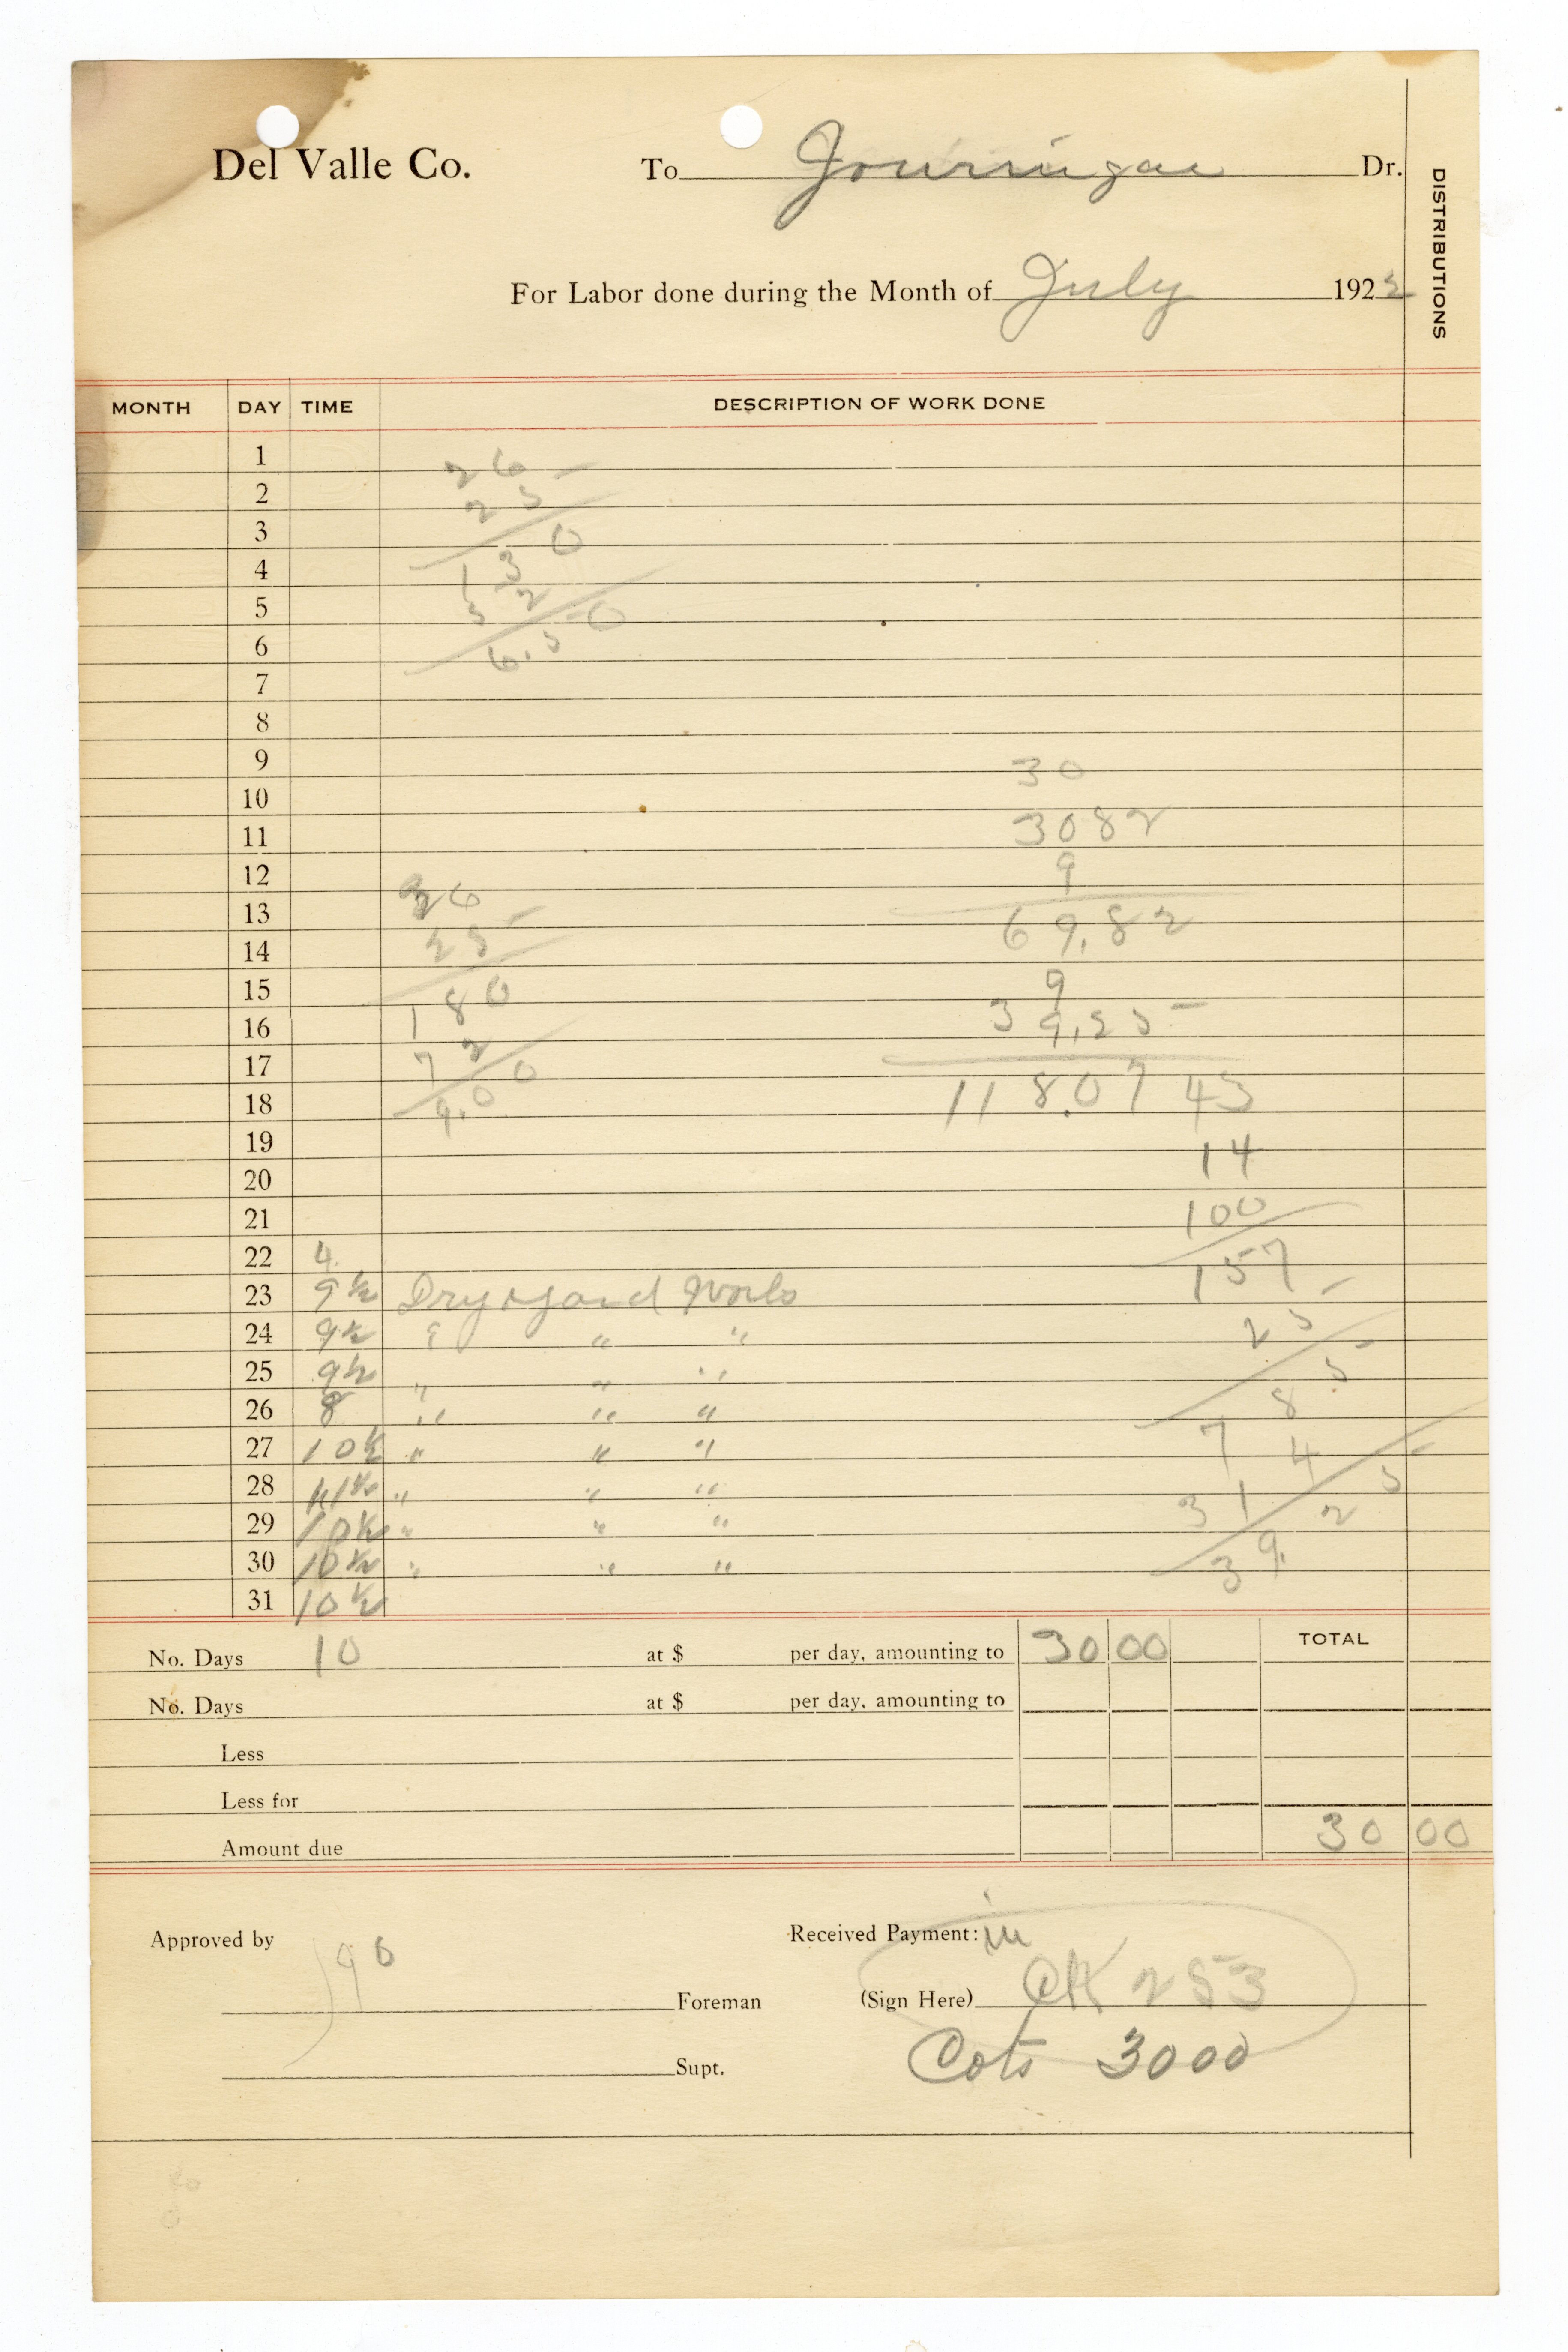 Del Valle Co. To Jourrigan Dr.
DISTRIBUTIONS
For Labor done during the Month of July 192
MONTH DAY TIME DESCRIPTION OF WORK DONE
1
26
2
25
3
130
4
5
52
6
6.50
7
8
9
30
10
11
3082
12
9
13
36
69.82
14
25
15
180
9
16
39.25
17
72
18
9.00
118.07 43
19
14
20
21
100
22 4
157
23 9½ Dry yard Work
24 9½ " " "
25
25 9½ " " "
26 8 " " "
785
27 10½ " " "
314
28 11½ " " "
29 10½ " " "
39.25
30 10½ " " "
31 10½
No. Days 10 at $ per day, amounting to 30 00 TOTAL
No. Days at $ per day, amounting to
Less
Less for
Amount due 30 00
Approved by 90
Received Payment: in
Foreman
(Sign Here) CK 253
Supt.
Cots 3000